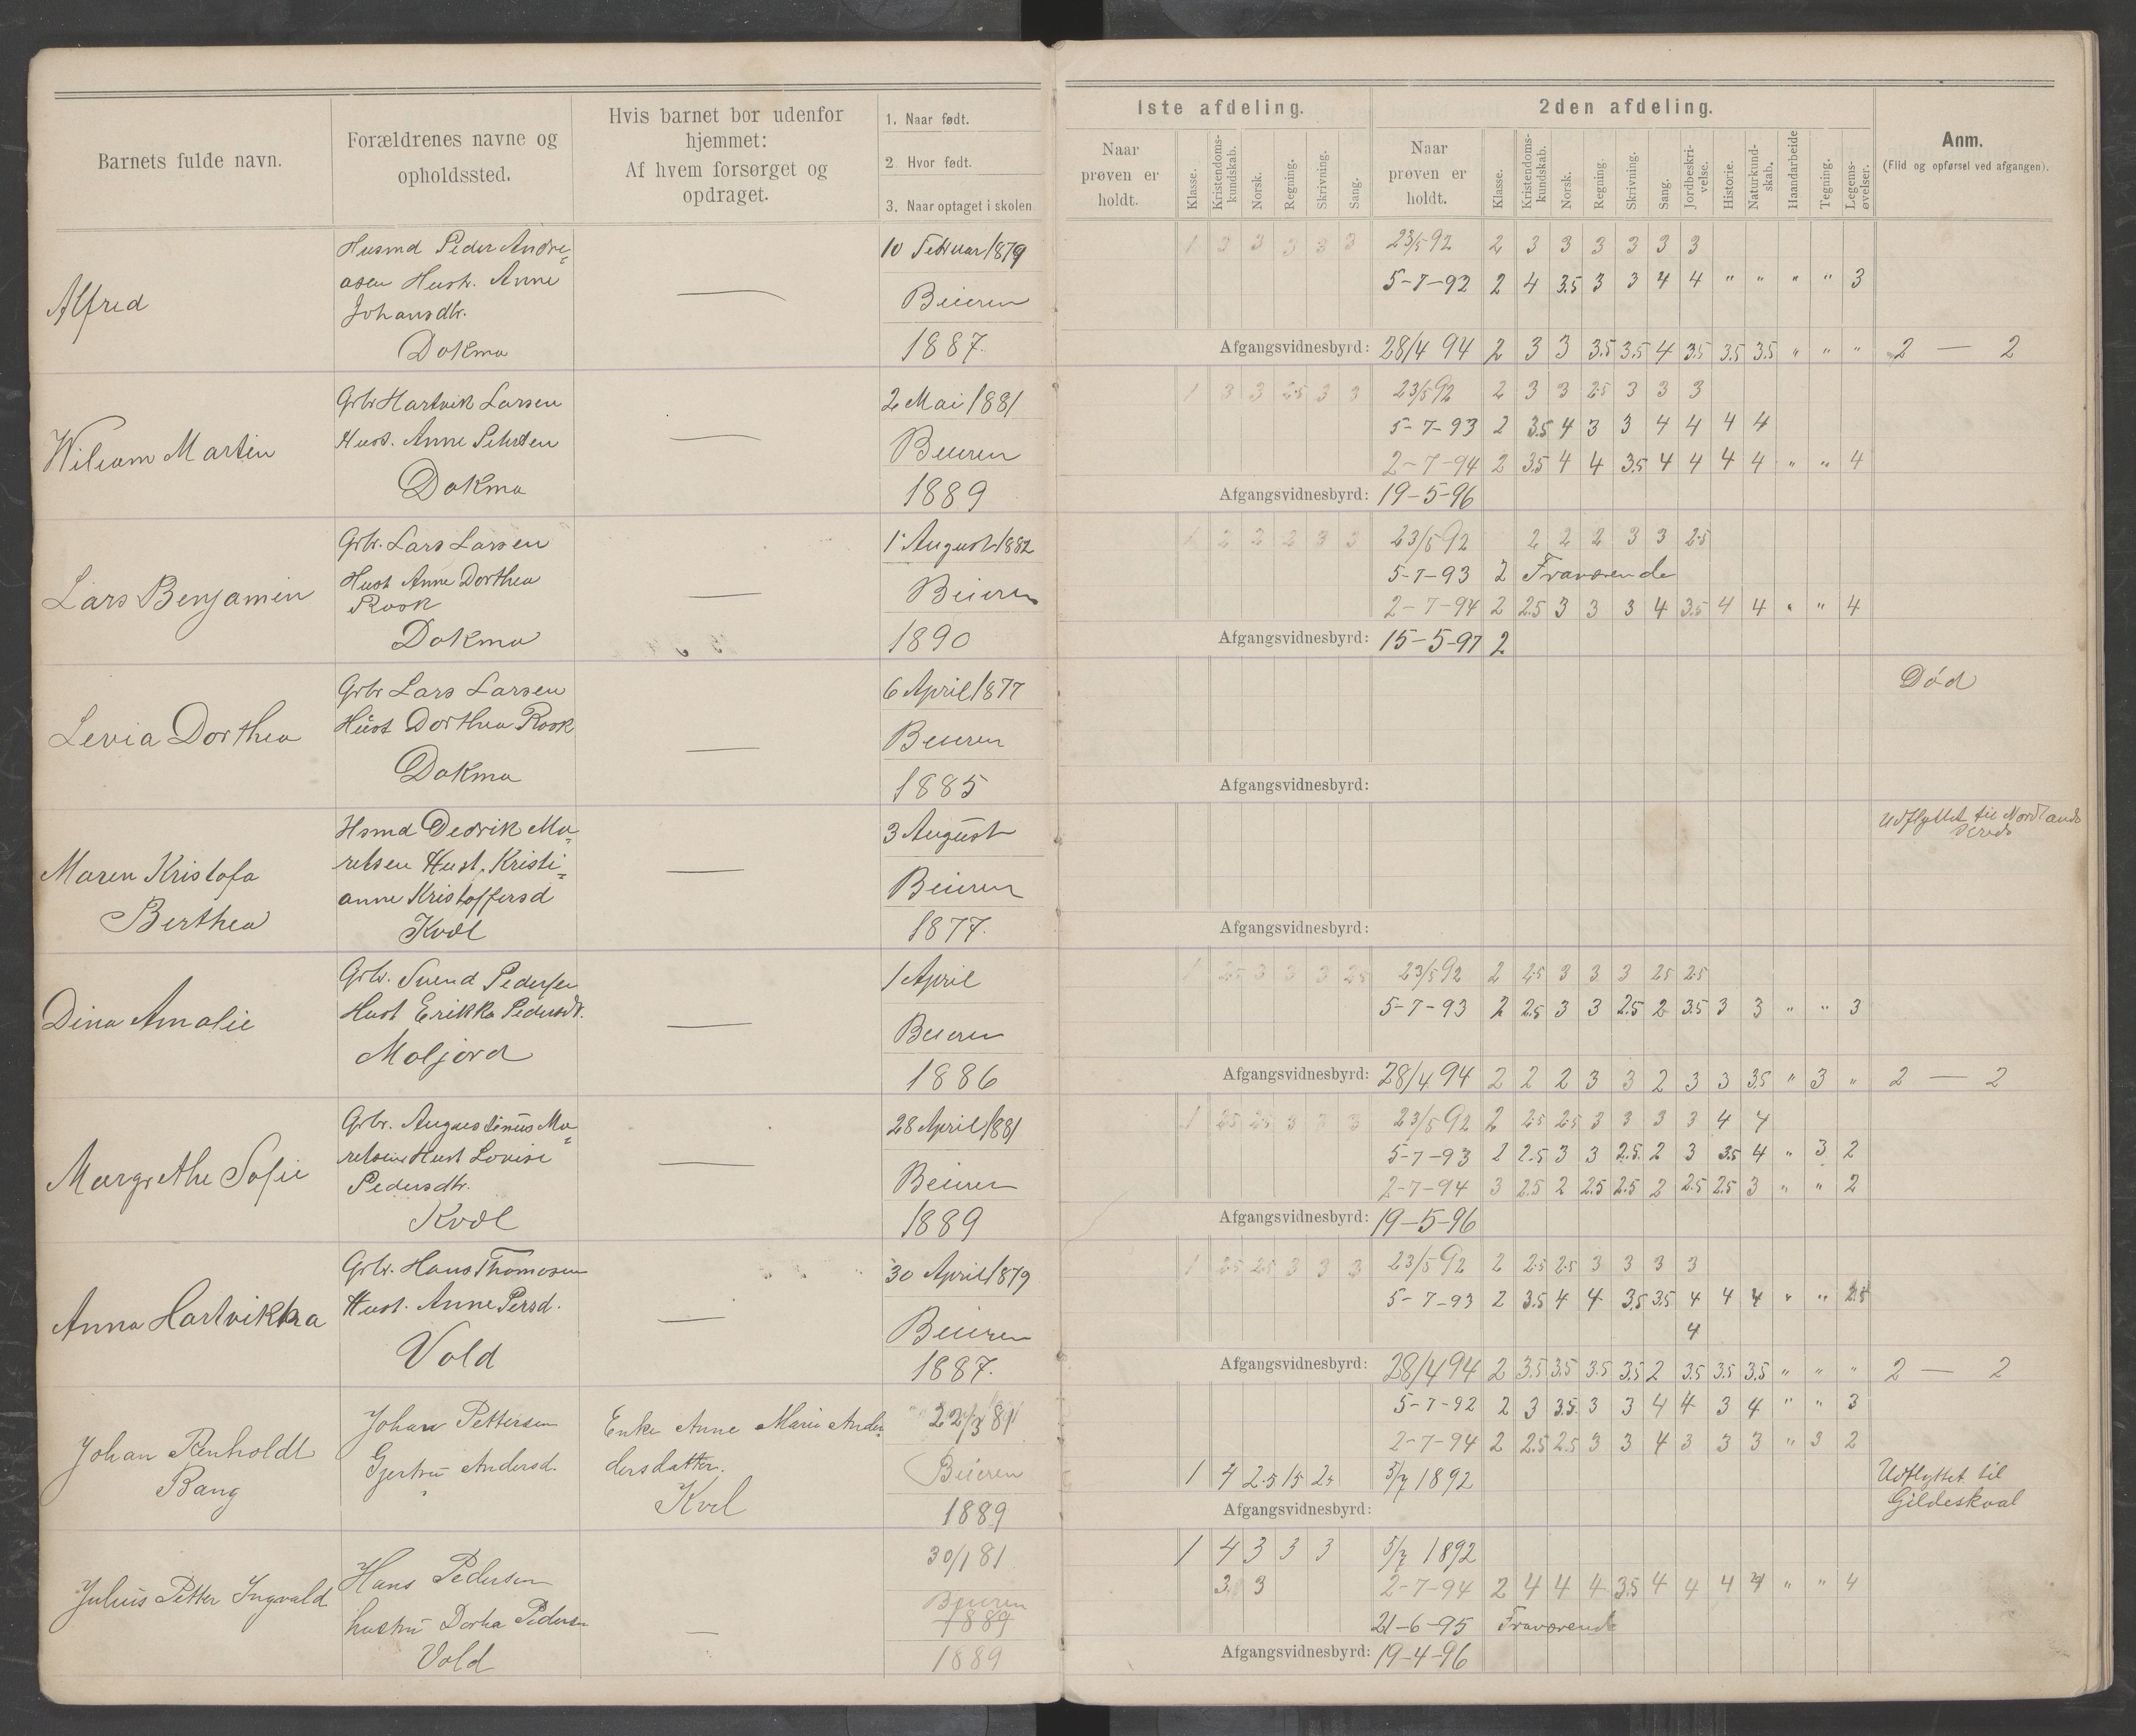 Barnets fulde navn.
Forældrenes navne og opholdssted.
Hvis barnet bor udenfor hjemmet:
Af hvem forsørget og opdraget.
1. Naar født.
2 Hvor født.
3. Naar optaget i skolen
1ste afdeling.
Naar prøven er holdt.
Klasse.
Kristendomskundskab.
Norsk.
Regning.
Skrivning.
Sang.
2den afdeling.
Naar prøven er holdt.
Klasse.
Kristendoms-kundskab.
Norsk.
Regning.
Skrivning.
Sang.
Jordbeskri-velse.
Historie.
Naturkund-skab.
Haandarbeide
Tegning.
Legems-øvelser.
Anm.
(Flid og opførsel ved afgangen).
Alfred
Husmd Peder Andre-
asen Hustr. Anne
Johansdtr.
Dokmo
10 Februar 1879
Beieren
1887.
1 3 3 3 3 3
23/5 92 2 3 3 3 3 3 3
5-7-92 2 4 3.5 3 3 4 4 " " " " 3
Afgangsvidnesbyrd: 28/4 94 2 3 3 3.5 3.5 4 3.5 3.5 3.5 " " " 2 — 2
Wiliam Martin
Grbr Hartvik Larsen
Hust. Anne Pehrsen
Dokmo
2 Mai 1881
Beieren
1889
1 3 3 2.5 3 3
23/5 92 2 3 3 2.5 3 3 3
5-7-93 2 3.5 4 3 3 4 4 4 4
2-7-94 2 3.5 4 4 3.5 4 4 4 4 " " 4
Afgangsvidnesbyrd: 19-5-96
Lars Benjamin
Grbr. Lars Larsen
Hust Anne Dorthea
Rosk
Dokmo
1 August 1882
Beieren
1890
1 2 2 2 3 3
23/5 92 2 2 2 3 3 2.5
5-7-93 2 Fraværende
2-7-94 2 2.5 3 3 3 4 3.5 4 4 " " 4
Afgangsvidnesbyrd: 15-5-97 2
Levia Dorthea
Grbr Lars Larsen
Hust Dorthea Rosk
Dokmo
6 April 1877
Beieren
1885
Død
Afgangsvidnesbyrd:
Maren Kristofa
Berthea
Hsmd Dedrik Mo-
retsen Hust. Kristi-
anne Kristoffersd
Kvæl
3 August
Beieren
1877.
Udflyttet til Nordlands
Afgangsvidnesbyrd:
Dina Amalie
Grbr. Svend Pedersen
Hust Erikka Pedersdt.
Moljord
1 April
Beieren
1886
1 2.5 3 3 3 2.5
23/5 92 2 2.5 3 3 3 2.5 2.5
5-7-93 2 2.5 3 3 2.5 2 3.5 3 3 " " 3
Afgangsvidnesbyrd: 28/4 94 2 2 2 3 3 2 3 3 3.5 " 3 " 2 — 2
Margrethe Sofie
Grbr. Augustinus Mo-
retsen Hust Lovise
Pedersdtr.
Kvæl
28 April 1881
Beieren
1889
1 2.5 2.5 3 3 3
23/5 92 2 2.5 2.5 3 3 3 3 4 4
5-7-93 2 2.5 3 3 2.5 2 3 3.5 4 " 3 2
2-7-94 3 2.5 2 2.5 2.5 2 2.5 2.5 3 " " 2
Afgangsvidnesbyrd: 19-5-96
Anna Hartvikka
Grbr. Hans Thomosen
Hust. Anne Persd.
Vold
30 April 1879
Beieren
1887.
1 2.5 2.5 3 3 3
23/5 92 2 2.5 2.5 3 3 3 3
5-7-93 2 3.5 4 4 3.5 3.5 4 4 4 " " 2.5
4
Afgangsvidnesbyrd: 28/4 94 2 3.5 3.5 3.5 3.5 2 3.5 3.5 3.5 " " " 2 — 2
Johan Renholdt
Bang
Johan Pettersen
Gjertru Andersd.
Enke Anne Marie Ander
dersdatter.
Kvæl
22/3 81
Beieren
1889
5-7-92 2 3 3.5 3 3 4 4 3 4 " " 3
2-7-94 2 2.5 2.5 3 3 4 3 3 3 " 3 2
1 4 2.5 1.5 2.5 5/7 1892
Udflyttet til
Gildeskaal
Afgangsvidnesbyrd:
Julius Petter Ingvald
Hans Pedersen
hustru Dorka Pedersen
Vold
30/1 81
Beieren
1889
1889
1 4 3 3 3 5/7 1892
3 3 2-7-94 2 4 4 4 3.5 4 4 4 4 " " 4
21-6-95 Fraværende
Afgangsvidnesbyrd: 19-4-96